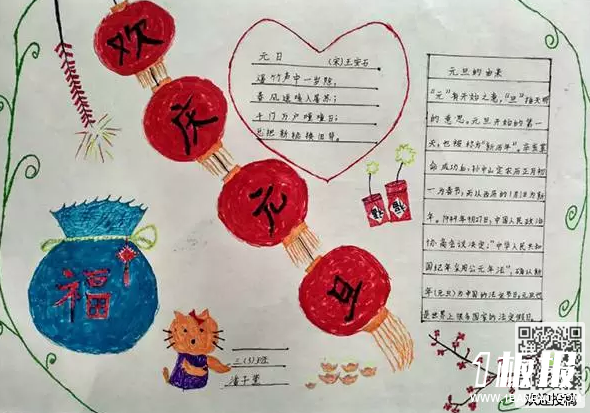 欢
庆
元
旦
元日
(宋)王安石
爆竹声中一岁除,
春风送暖入屠苏;
千门万户曈曈日;
总把新桃换旧符。
元旦的由来
"元"有开始之意,"旦"指天明
的意思。元旦开始的第一
天,也被称为"新历年"。辛亥革
命成功后,孙中山定农历正月初
一为春节;而以西历的1月1日为新
年。1949年9月27日,中国人民政治
协商会议决定:"中华人民共和
国纪年采用公元年法",确认新
年(元旦)为中国的法定节日;元旦也
是世界上很多国家的法定假日。
福
福
福
三(3)班
欢迎投稿